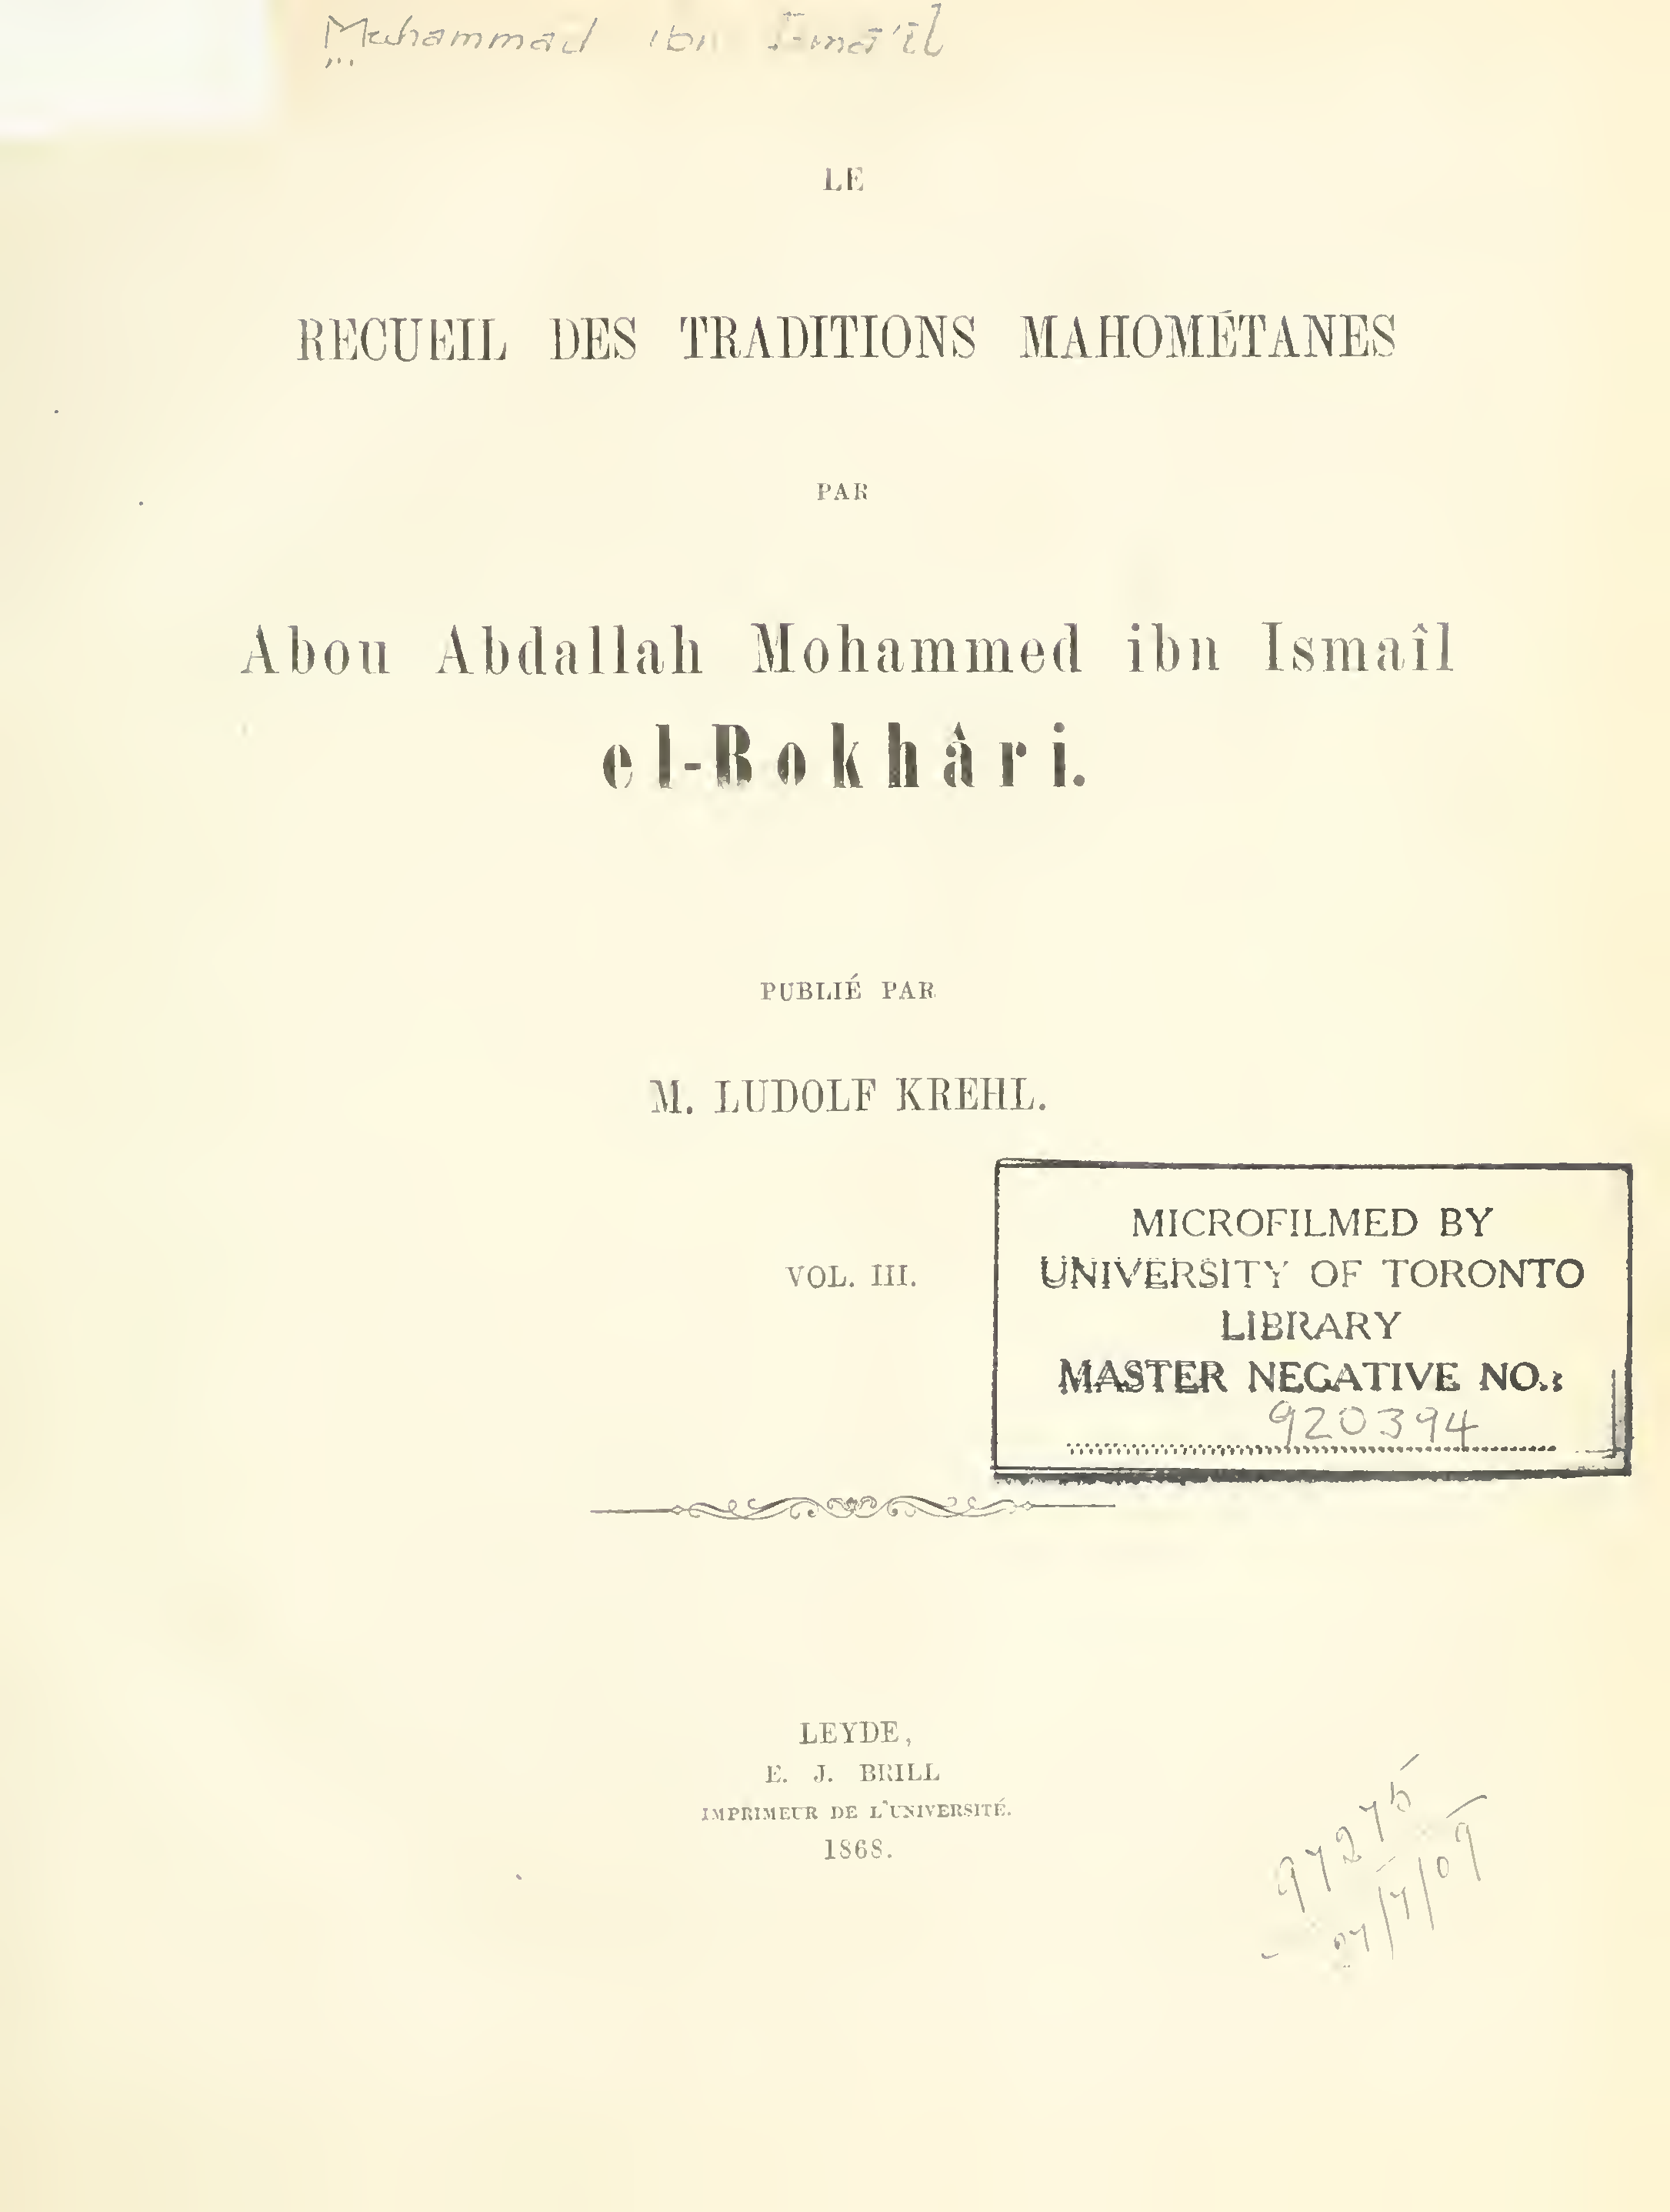 Muhammad ibn Ismā'īl
LE
RECUEIL DES TRADITIONS MAHOMÉTANES
PAR
Abou Abdallah Mohammed ibn Ismaîl
el-Bokhâri.
PUBLIÉ PAR
M. LUDOLF KREHL.
VOL. III.
MICROFILMED BY
UNIVERSITY OF TORONTO
LIBRARY
MASTER NEGATIVE NO.:
920394
LEYDE,
E. J. BRILL
IMPRIMEUR DE L'UNIVERSITÉ.
1868.
97275
27/7/09